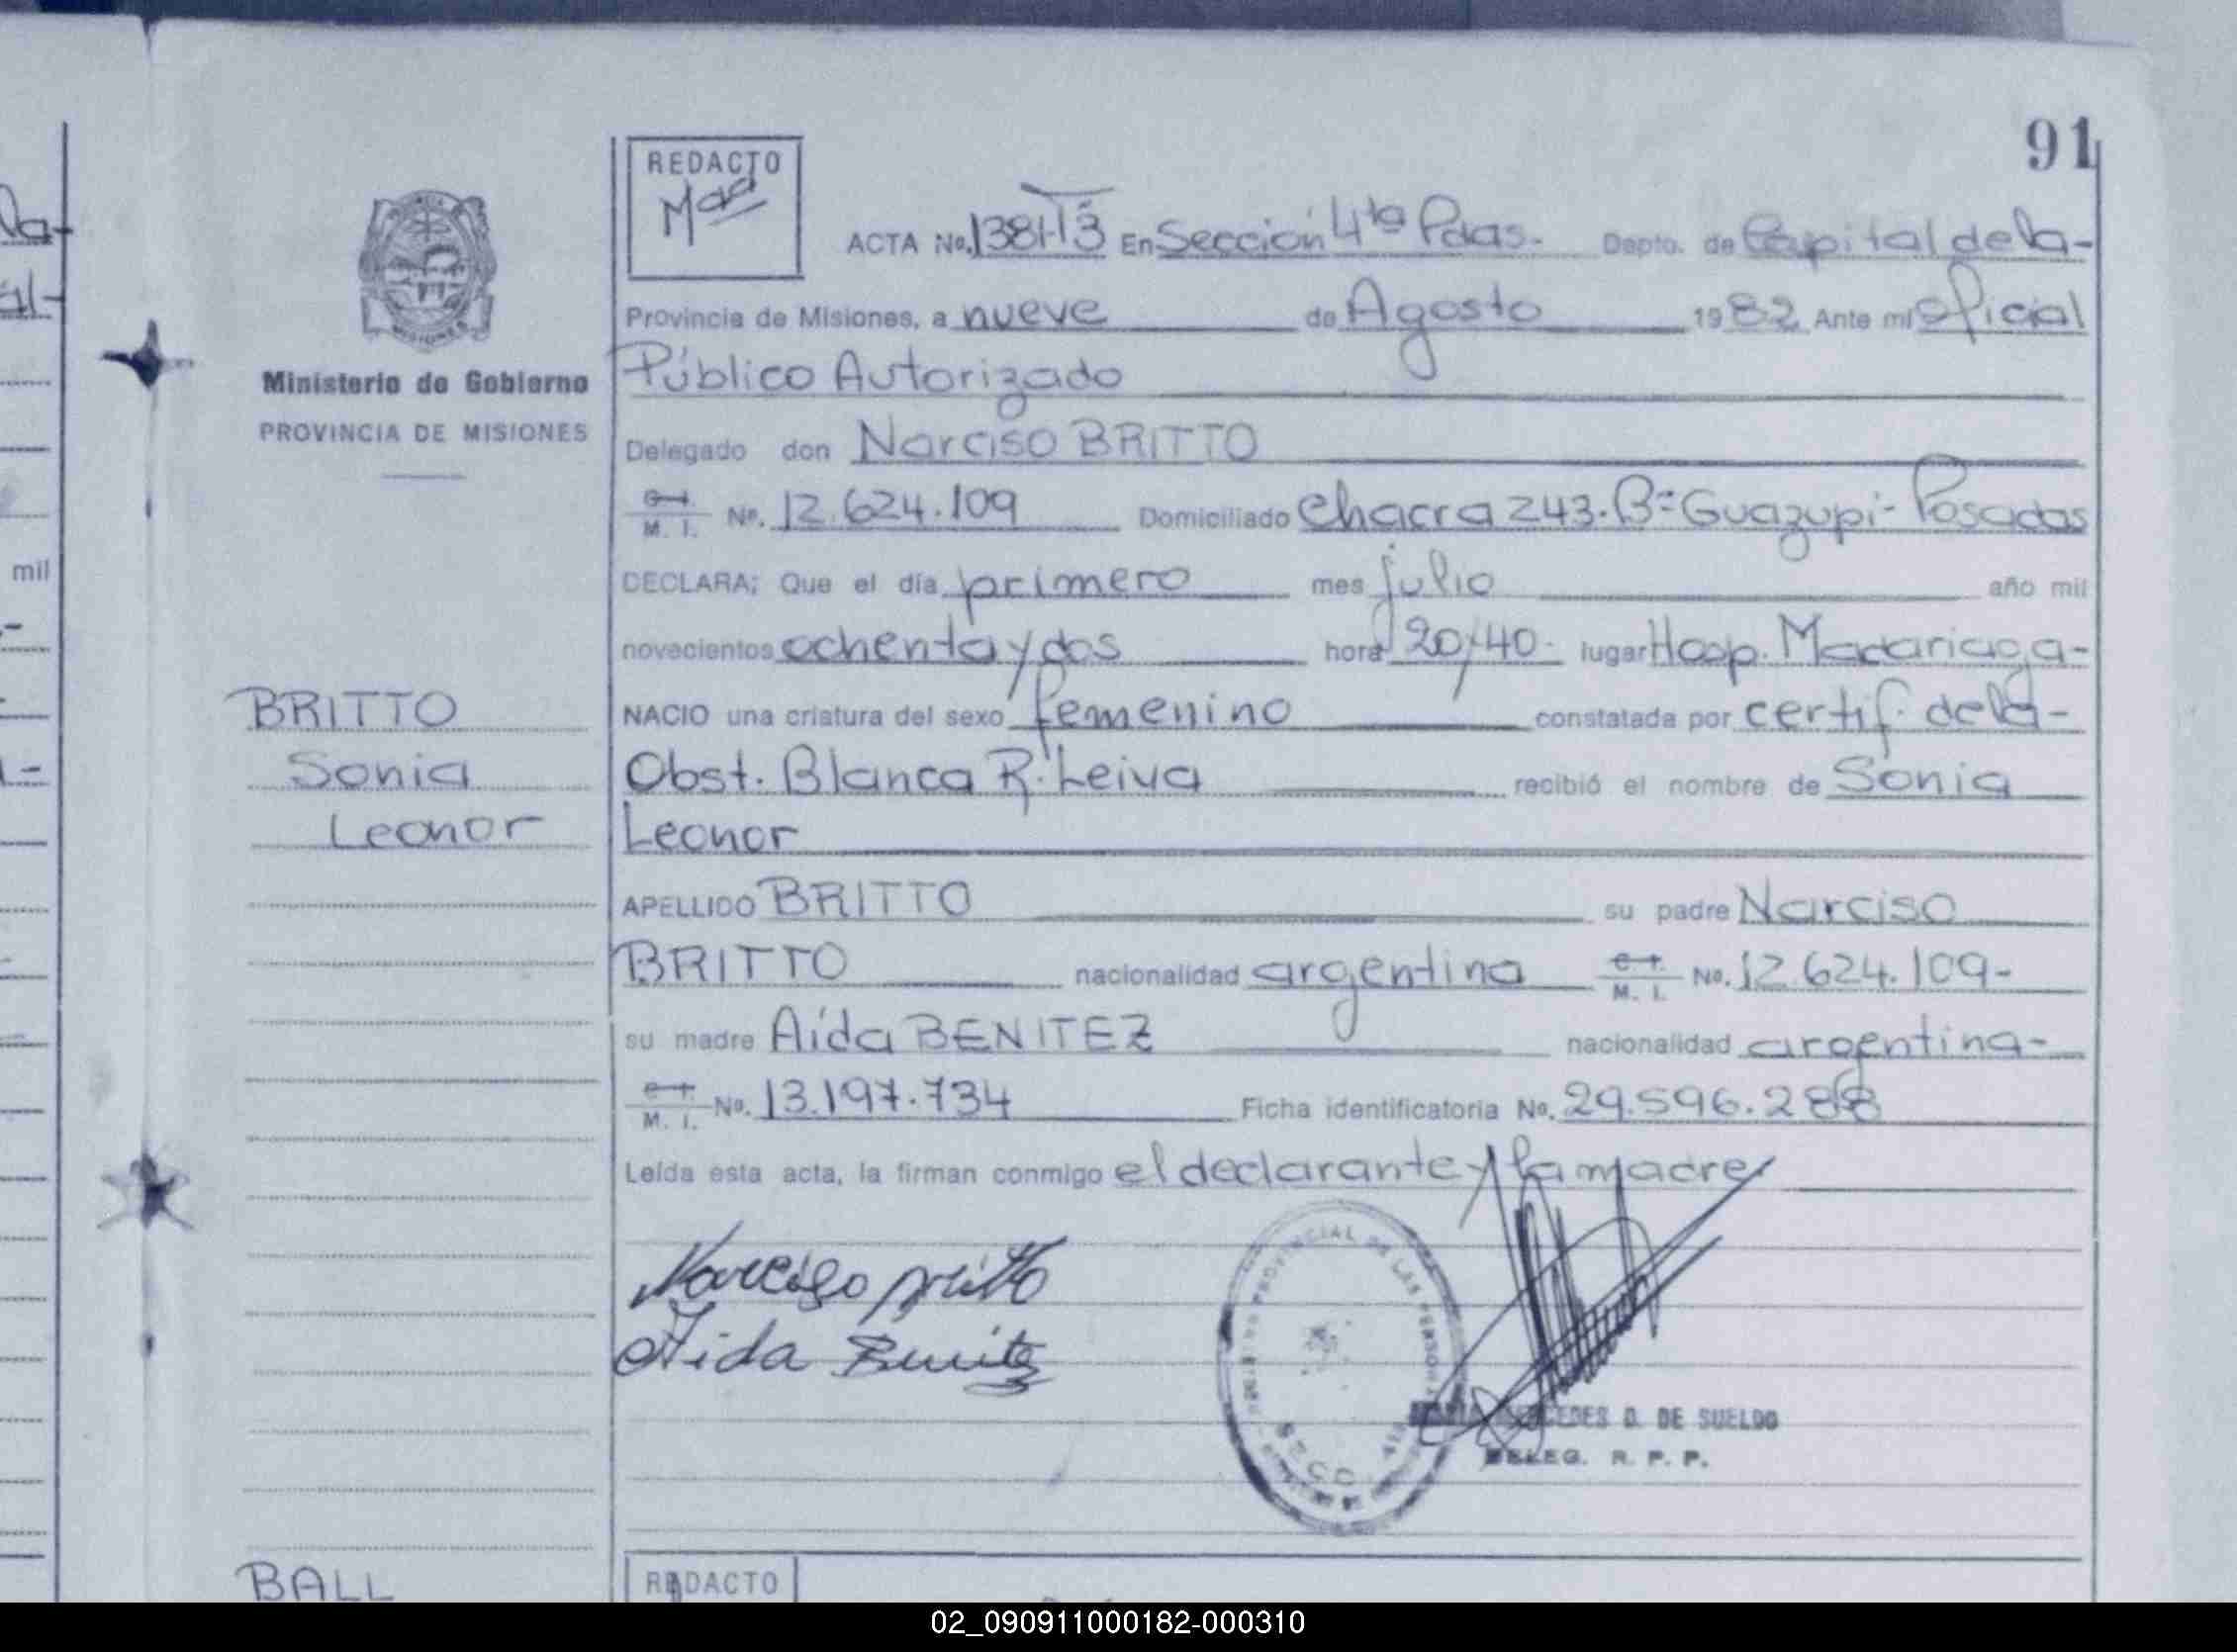 91
REDACTO
Mad
ACTA No. 1381-T3 En Sección 4ta Pdas. Depto. de Capital de la-
Provincia de Misiones, a nueve de Agosto 1982 Ante mi oficial
Público Autorizado
Delegado don Narciso BRITTO
M. I. No. 12.624.109 Domiciliado Chacra 243. Bº Guazupi- Posadas
DECLARA; Que el día primero mes julio año mil
novecientos ochenta y dos hora 20,40- lugar Hosp. Madariaga-
NACIO una criatura del sexo femenino constatada por certif. de la-
Obst. Blanca R. Leiva recibió el nombre de Sonia
Leonor
APELLIDO BRITTO su padre Narciso
BRITTO nacionalidad argentina M. I. No. 12.624.109-
su madre Aída BENITEZ nacionalidad argentina-
M. I. No. 13.197.734 Ficha identificatoria No. 29.596.288
Leída esta acta, la firman conmigo el declarante y la madre
Narciso Britto
Aida Benitez
PROVINCIAL DE LAS PERSONAS
MERCEDES D. DE SUELDO
DELEG. R. P. P.
REDACTO
Ministerio de Gobierno
PROVINCIA DE MISIONES
BRITTO
Sonia
Leonor
BALL
la-
al-
mil
02_090911000182-000310